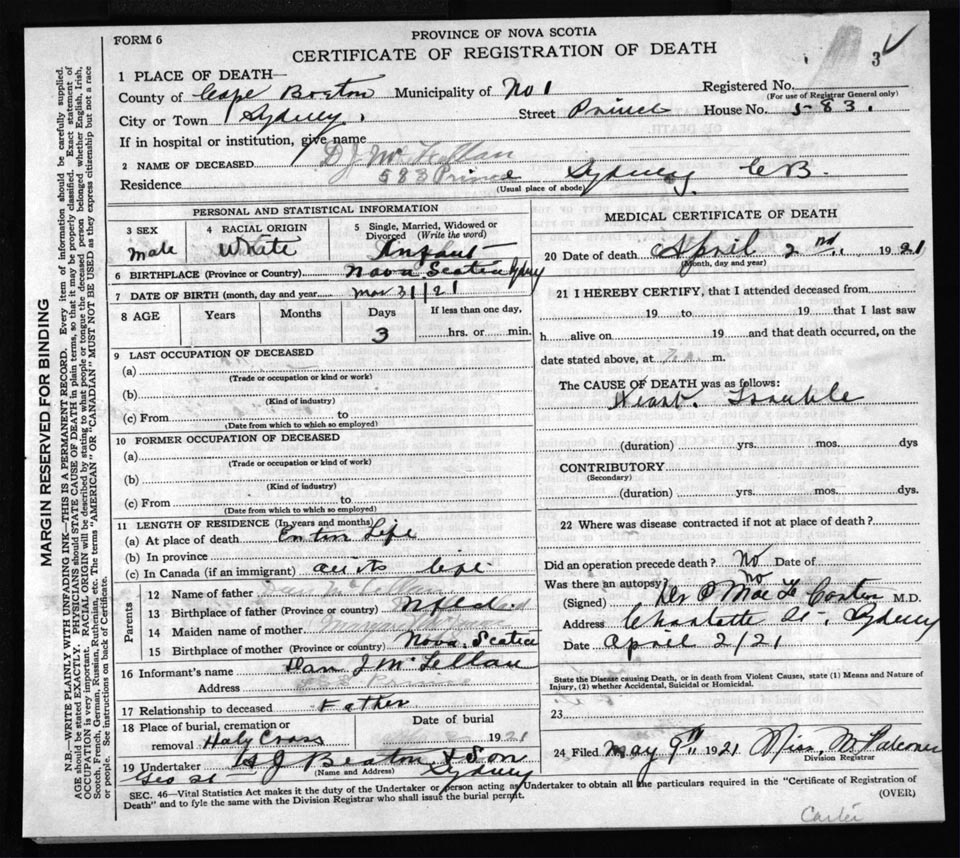 PROVINCE OF NOVA SCOTIA
FORM 6
CERTIFICATE OF REGISTRATION OF DEATH
3
1 PLACE OF DEATH—
County of Cape Breton Municipality of No 1 Registered No.
(For use of Registrar General only)
City or Town Sydney. Street Prince House No. 583.
If in hospital or institution, give name
2 NAME OF DECEASED D J McLellan
Residence 583 Prince Sydney C B.
(Usual place of abode)
PERSONAL AND STATISTICAL INFORMATION
3 SEX
male
4 RACIAL ORIGIN
White
5 Single, Married, Widowed or
Divorced (Write the word)
Infant
6 BIRTHPLACE (Province or Country) Nova Scotia Sydney
7 DATE OF BIRTH (month, day and year) Mar 31/21
8 AGE Years Months Days If less than one day,
3 hrs. or min.
9 LAST OCCUPATION OF DECEASED
(a)
(Trade or occupation or kind or work)
(b)
(Kind of industry)
(c) From to
(Date from which to which so employed)
10 FORMER OCCUPATION OF DECEASED
(a)
(Trade or occupation or kind of work)
(b)
(Kind of industry)
(c) From to
(Date from which to which so employed)
11 LENGTH OF RESIDENCE (In years and months)
(a) At place of death Entire Life
(b) In province
(c) In Canada (if an immigrant) all its life
Parents
12 Name of father
13 Birthplace of father (Province or country) Nfld.
14 Maiden name of mother
15 Birthplace of mother (Province or country) Nova Scotia
16 Informant's name Dan J McLellan
Address 583 Prince
17 Relationship to deceased Father
18 Place of burial, cremation or
removal Holy Cross
Date of burial
1921
19 Undertaker A J Beaton & Son
(Name and Address)
Geo St Sydney
MEDICAL CERTIFICATE OF DEATH
20 Date of death April 2nd, 1921
(Month, day and year)
21 I HEREBY CERTIFY, that I attended deceased from
19 to 19 that I last saw
h alive on 19 and that death occurred, on the
date stated above, at m.
The CAUSE OF DEATH was as follows:
Heart Trouble
(duration) yrs. mos. dys
CONTRIBUTORY
(Secondary)
(duration) yrs. mos. dys.
22 Where was disease contracted if not at place of death?
Did an operation precede death? No Date of
Was there an autopsy? no
(Signed) M.D.
Address Charlotte St., Sydney
Date April 2/21
State the Disease causing Death, or in death from Violent Causes, state (1) Means and Nature of
Injury, (2) whether Accidental, Suicidal or Homicidal.
23
24 Filed May 9th, 1921 Miss. Falconer
Division Registrar
SEC. 46—Vital Statistics Act makes it the duty of the Undertaker or person acting as Undertaker to obtain all the particulars required in the "Certificate of Registration of
Death" and to fyle the same with the Division Registrar who shall issue the burial permit.
(OVER)
Carter
MARGIN RESERVED FOR BINDING
N.B.—WRITE PLAINLY WITH UNFADING INK—THIS IS A PERMANENT RECORD. Every item of information should be carefully supplied.
AGE should be stated EXACTLY. PHYSICIANS should STATE CAUSE OF DEATH in plain terms, so that it may be properly classified. Exact statement of
OCCUPATION is very important. RACIAL ORIGIN will be described by stating to what people or tongue the deceased person belonged whether English, Irish,
Scotch, French, German, Russian, Ruthenian, etc. The terms "AMERICAN" OR "CANADIAN" MUST NOT BE USED as they express citizenship but not a race
or people. See instructions on back of Certificate.